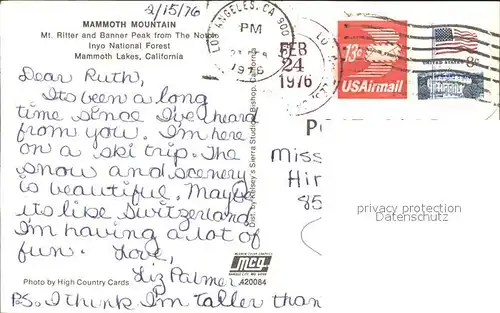 2/15/76
MAMMOTH MOUNTAIN
Mt. Ritter and Banner Peak from The Notch
Inyo National Forest
Mammoth Lakes, California
Dear Ruth,
Its been a long
time since I've heard
from you. I'm here
on a ski trip. The
snow and scenery
is beautiful. Maybe
its like Switzerland
I'm having a lot of
fun. Love,
Liz Palmer
P.S. I think I'm taller than
Photo by High Country Cards
Dist. by Kelsey's Sierra Studios, Bishop, California
MCG
A20084
LOS ANGELES, CA 900
PM
1976
FEB
24
1976
13c
USAirmail
UNITED STATES
8c
PO
Miss
Hir
85
privacy protection
Datenschutz